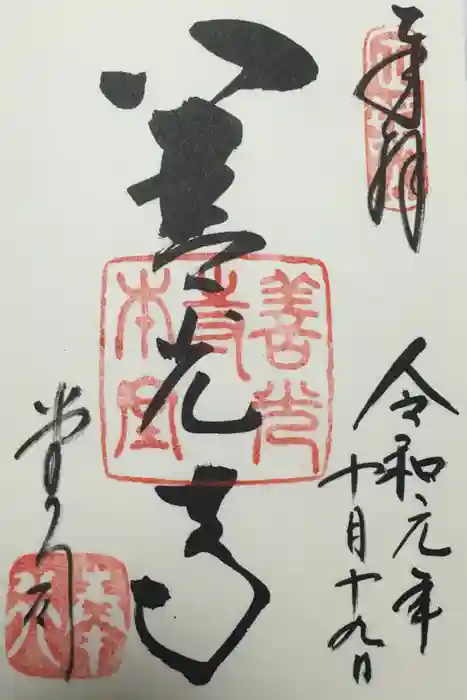 奉拝
令和元年
十月十九日
善光寺
善光寺本堂
堂司